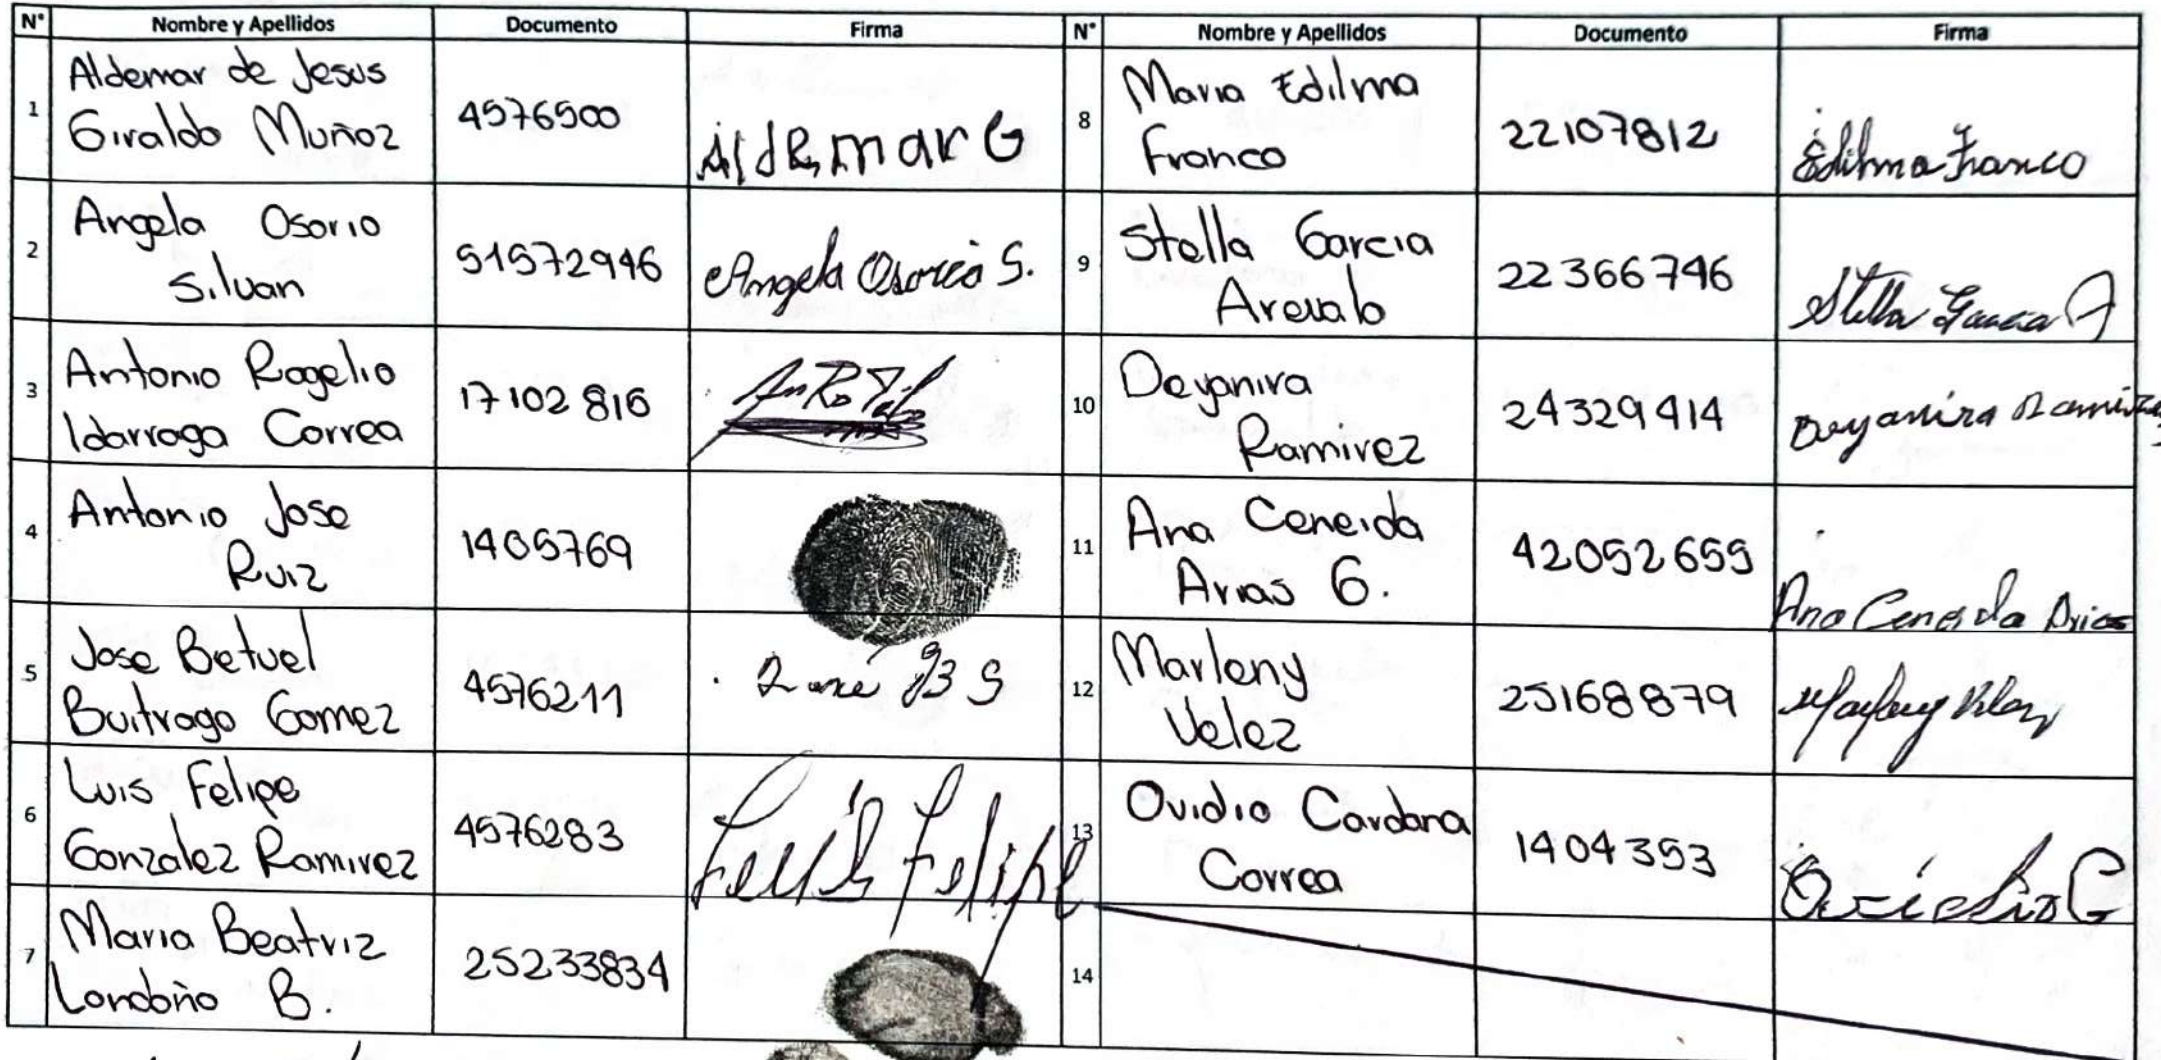 N° Nombre y Apellidos Documento Firma N° Nombre y Apellidos Documento Firma
1 Aldemar de Jesus Giraldo Muñoz 4576500 Aldemar G
8 Maria Edilma Franco 22107812 Edilma Franco
2 Angela Osorio Silvan 51572946 Angela Osorio S.
9 Stella Garcia Arevalo 22366746 Stella Garcia A
3 Antonio Rogelio Idarraga Correa 17102816
10 Deyanira Ramirez 24329414 Deyanira Ramirez
4 Antonio Jose Ruiz 1405769
11 Ana Ceneida Arias G. 42052655 Ana Ceneida Arias
5 Jose Betuel Buitrago Gomez 4576211 José B G
12 Marleny Velez 25168879 Marleny Velez
6 Luis Felipe Gonzalez Ramirez 4576283 Luís Felipe
13 Ovidio Cardona Correa 1404353 Ovidio C
7 Maria Beatriz Londoño B. 25233834
14